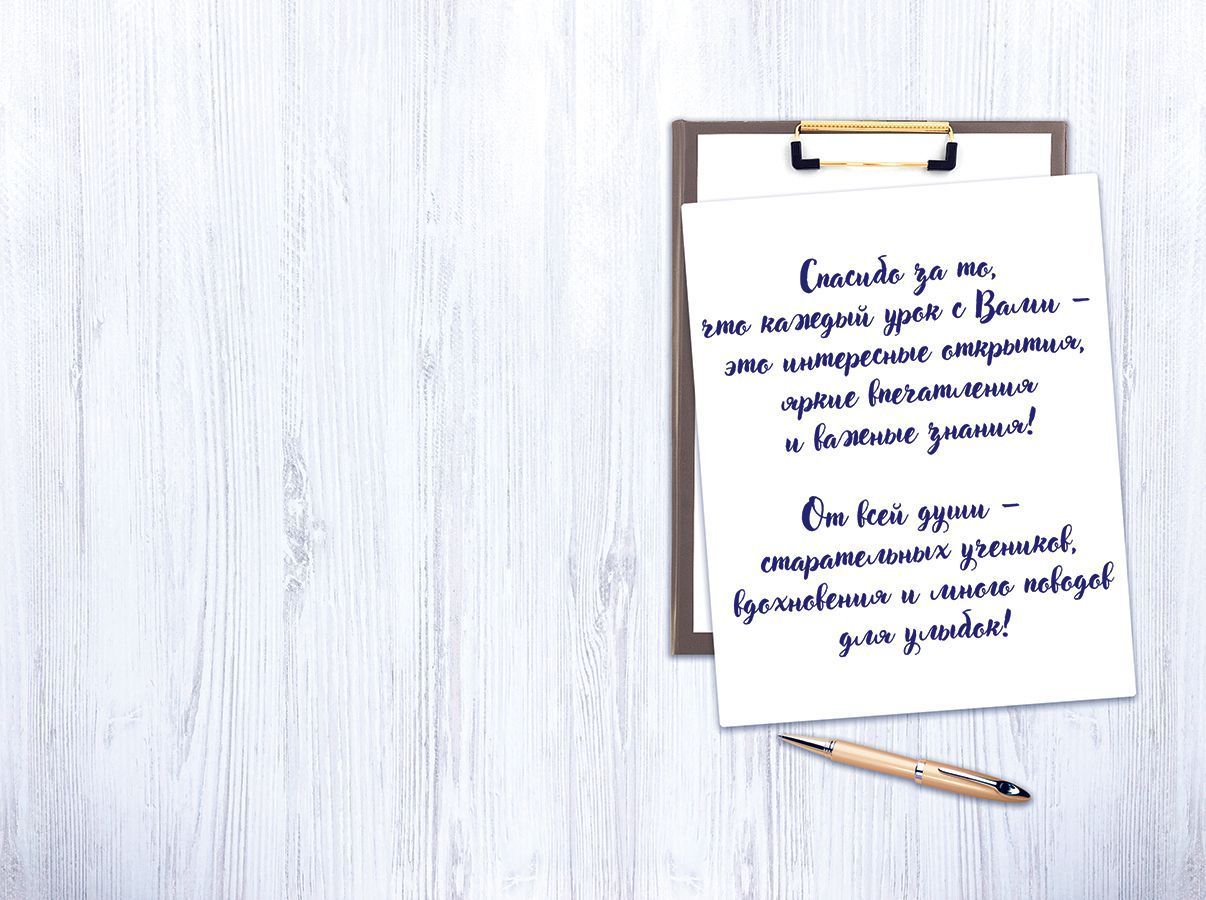 Спасибо за то,
что каждый урок с Вами –
это интересные открытия,
яркие впечатления
и важные знания!
От всей души –
старательных учеников,
вдохновения и много поводов
для улыбок!